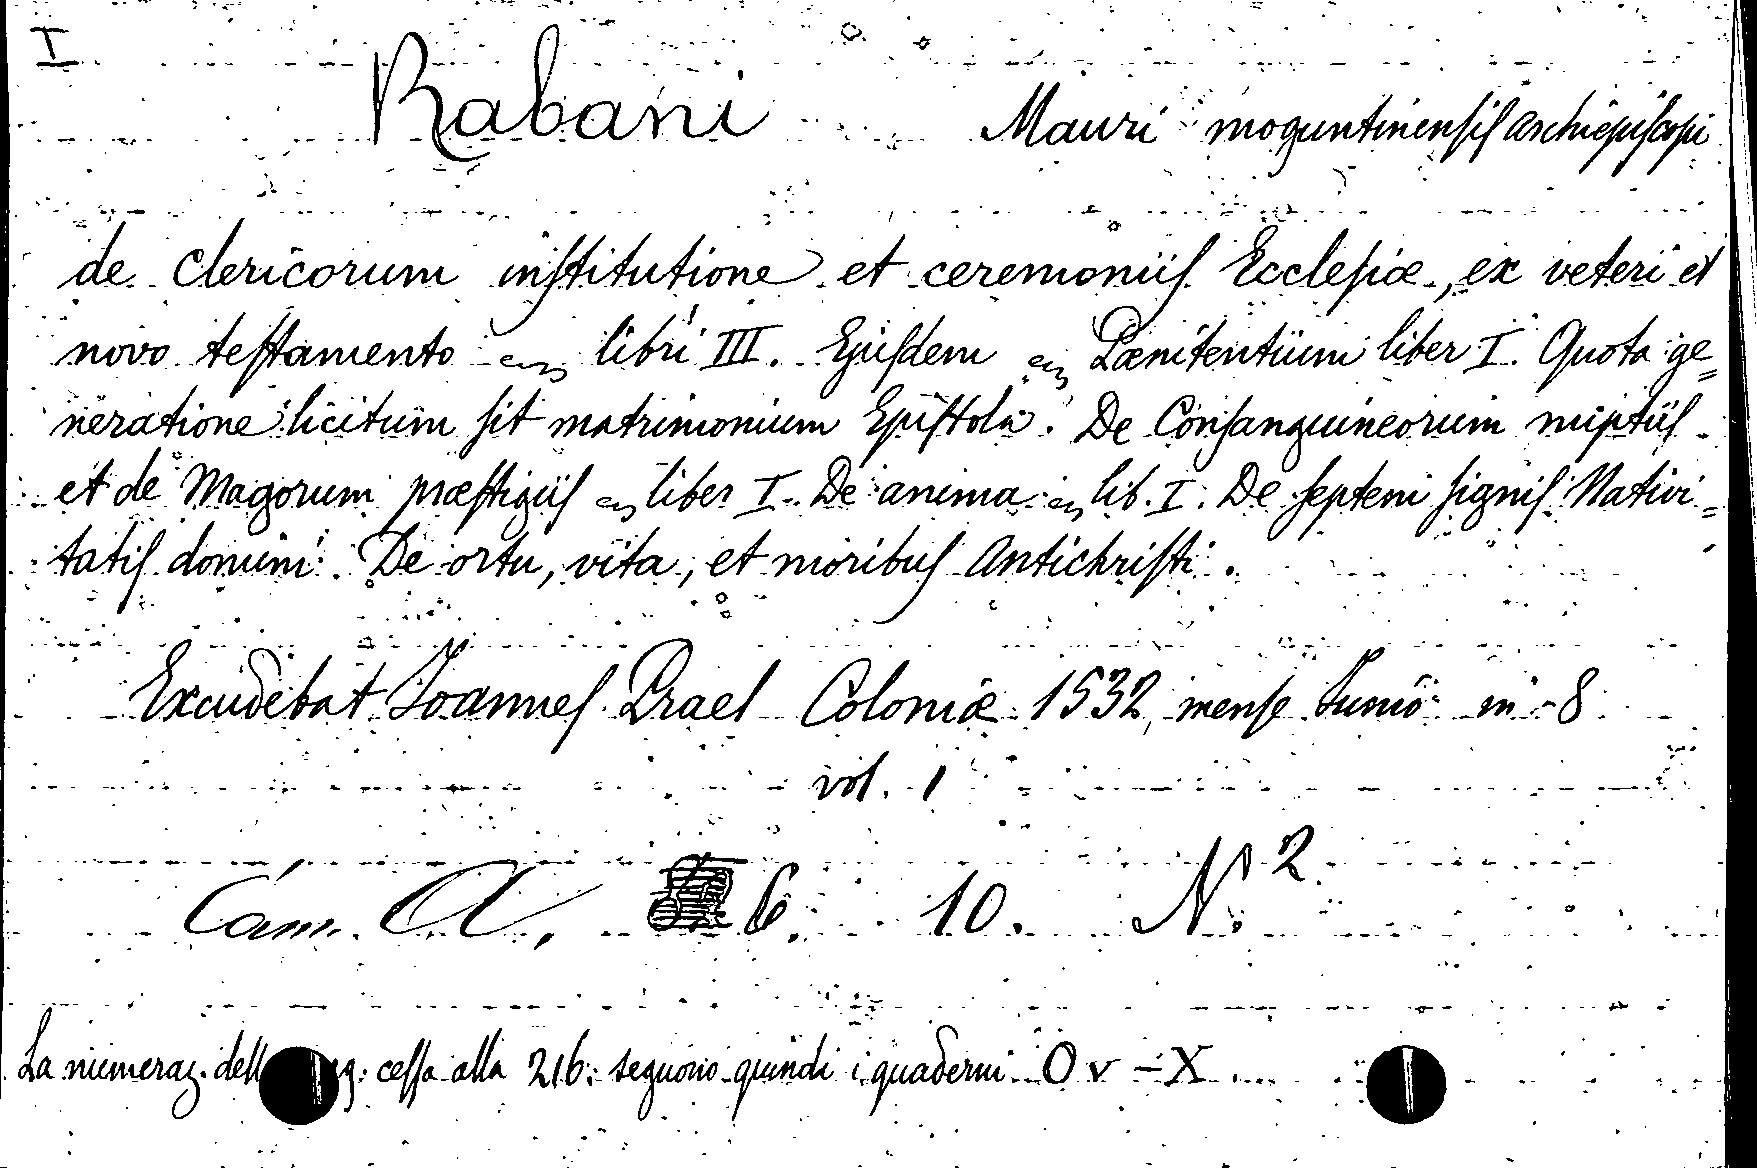 I
Rabani Mauri moguntinensis archiepiscopi
de clericorum institutione et ceremoniis Ecclesiæ, ex veteri et
novo testamento libri III. Ejusdem Pœnitentium liber I. Quota ge=
neratione licitum sit matrimonium Epistola. De Consanguineorum nuptiis
et de Magorum præstigiis liber I. De anima lib. I. De septem signis Nativi=
tatis domini. De ortu, vita, et moribus Antichristi.
Excudebat Joannes Prael Coloniæ 1532, mense Junio in 8
vol. 1
Cam. A, 6. 10. N. 2
La numeraz. cessa alla 216: seguono quindi i quaderni O v - X